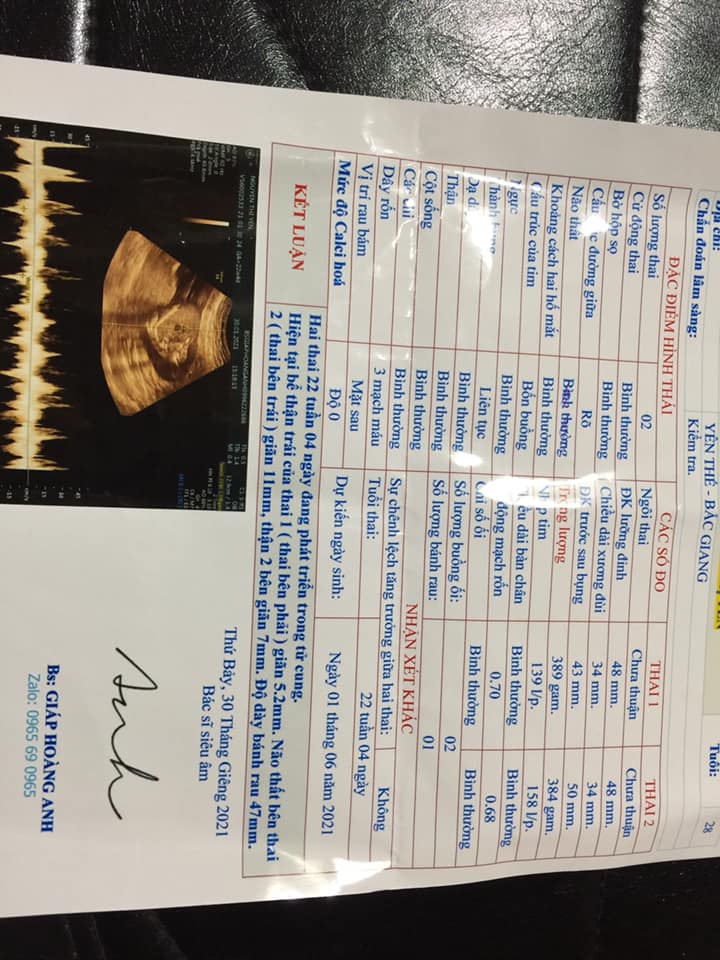 Chẩn đoán lâm sàng:
YÊN THẾ - BẮC GIANG
Kiểm tra.
Tuổi:
28
ĐẶC ĐIỂM HÌNH THÁI
CÁC SỐ ĐO
THAI 1
THAI 2
Số lượng thai
02
Ngôi thai
Chưa thuận
Chưa thuận
Cử động thai
Bình thường
ĐK lưỡng đỉnh
48 mm.
48 mm.
Bờ hộp sọ
Bình thường
Chiều dài xương đùi
34 mm.
34 mm.
đường giữa
Rõ
ĐK trước sau bụng
43 mm.
50 mm.
Não thất
Bình thường
Trọng lượng
389 gam.
384 gam.
Khoảng cách hai hố mắt
Bình thường
tim
139 l/p.
158 l/p.
Cấu trúc của tim
Bốn buồng
dài bàn chân
Bình thường
Bình thường
ngực
Bình thường
động mạch rốn
0.70
0.68
Liên tục
số ối
Bình thường
Bình thường
Bình thường
Số lượng buồng ối:
02
Thận
Bình thường
Số lượng bánh rau:
01
Cột sống
Bình thường
NHẬN XÉT KHÁC
Bình thường
Sự chênh lệch tăng trưởng giữa hai thai:
Không
Dây rốn
3 mạch máu
Tuổi thai:
22 tuần 04 ngày
Vị trí rau bám
Mặt sau
Dự kiến ngày sinh:
Ngày 01 tháng 06 năm 2021
Mức độ Calci hoá
Độ 0
KẾT LUẬN
Hai thai 22 tuần 04 ngày đang phát triển trong tử cung.
Hiện tại bể thận trái của thai 1 ( thai bên phải ) giãn 5.2mm. Não thất bên thai
2 ( thai bên trái ) giãn 11mm, thận 2 bên giãn 7mm. Độ dày bánh rau 47mm.
NGUYEN THI YEN,
30.01.2021
Thứ Bảy, 30 Tháng Giêng 2021
Bác sĩ siêu âm
Anh
Bs: GIÁP HOÀNG ANH
Zalo: 0965 69 0965